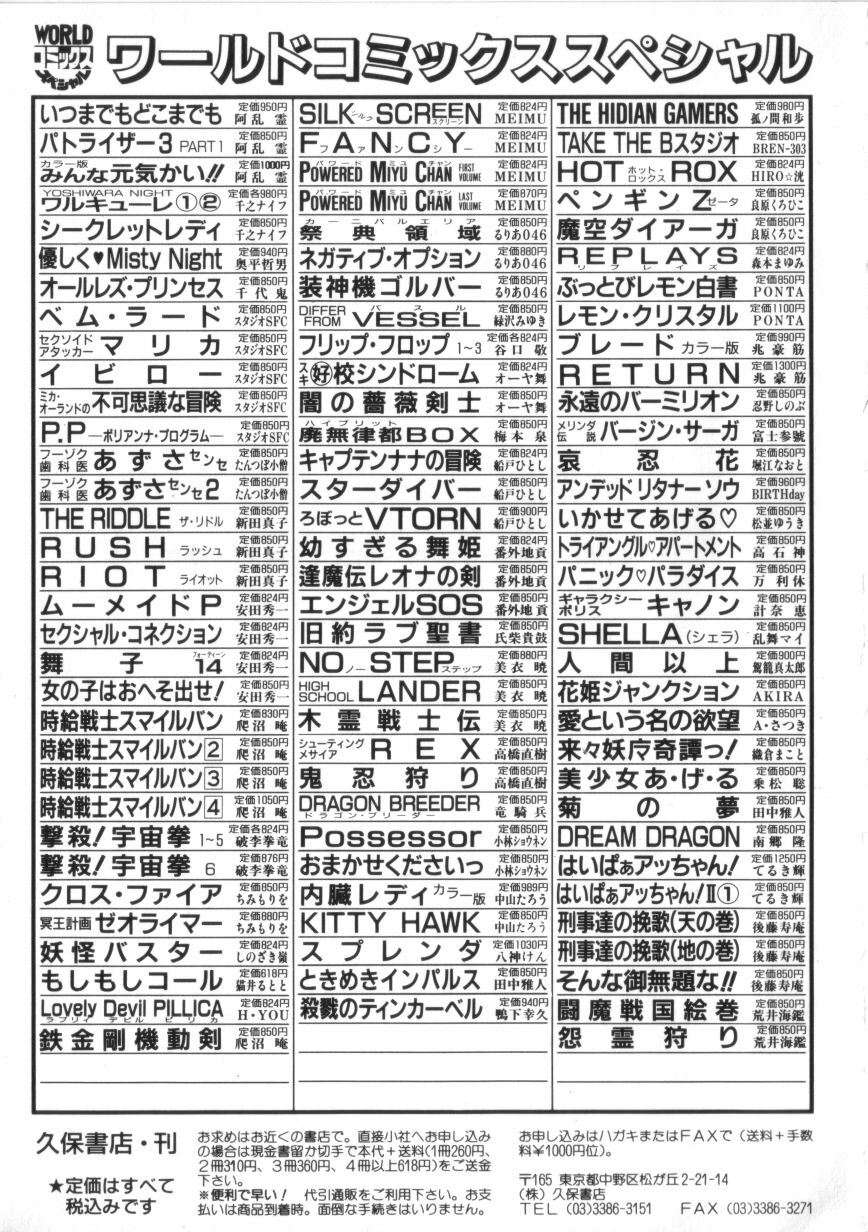 WORLD
コミックス
スペシャル
ワールドコミックススペシャル
いつまでもどこまでも 定価950円 阿乱霊
パトライザー3 PART1 定価850円 阿乱霊
カラー版 みんな元気かい!! 定価1000円 阿乱霊
YOSHIWARA NIGHT ワルキューレ①② 定価各980円 千之ナイフ
シークレットレディ 定価850円 千之ナイフ
優しく♥Misty Night 定価940円 奥平哲男
オールレズ・プリンセス 定価850円 千代鬼
ベム・ラード 定価850円 スタジオSFC
セクソイドアタッカー マリカ 定価850円 スタジオSFC
イビロー 定価850円 スタジオSFC
ミカ・オーランドの不可思議な冒険 定価850円 スタジオSFC
P.P ―ポリアンナ・プログラム― 定価850円 スタジオSFC
フーゾク歯科医 あずさセンセ 定価850円 たんつぼ小僧
フーゾク歯科医 あずさセンセ2 定価850円 たんつぼ小僧
THE RIDDLE ザ・リドル 定価850円 新田真子
RUSH ラッシュ 定価850円 新田真子
RIOT ライオット 定価850円 新田真子
ムーメイドP 定価824円 安田秀一
セクシャル・コネクション 定価824円 安田秀一
舞子14 フォーティーン 定価824円 安田秀一
女の子はおへそ出せ! 定価850円 安田秀一
時給戦士スマイルバン 定価830円 爬沼 晻
時給戦士スマイルバン2 定価850円 爬沼
時給戦士スマイルバン3 定価850円 爬沼
時給戦士スマイルバン4 定価1050円 爬沼
撃殺!宇宙拳 1~5 定価各824円 破李拳竜
撃殺!宇宙拳 6 定価876円 破李拳竜
クロス・ファイア 定価850円 ちみもりを
冥王計画ゼオライマー 定価880円 ちみもりを
妖怪バスター 定価824円 しのざき嶺
もしもしコール 定価618円 猫井るとと
Lovely Devil PILLICA ラブリィ デビル ピリカ 定価824円 H・YOU
鉄金剛機動剣 定価850円 爬沼
SILK シルク SCREEN スクリーン 定価824円 MEIMU
FANCY ファンシー 定価824円 MEIMU
POWERED MIYU CHAN パワード ミユ チャン FIRST VOLUME 定価824円 MEIMU
POWERED MIYU CHAN パワード ミユ チャン LAST VOLUME 定価870円 MEIMU
祭典領域 カーニバルエリア 定価850円 るりあ046
ネガティブ・オプション 定価880円 るりあ046
装神機ゴルバー 定価850円 るりあ046
DIFFER FROM VESSEL バスル 定価850円 緑沢みゆき
フリップ・フロップ 1~3 定価各824円 谷口敬
スキ好校シンドローム 定価824円 オーヤ舞
闇の薔薇剣士 定価850円 オーヤ舞
廃無律都BOX ハイブリット 定価850円 梅本泉
キャプテンナナの冒険 定価824円 船戸ひとし
スターダイバー 定価850円 船戸ひとし
ろぼっとVTORN 定価900円 船戸ひとし
幼すぎる舞姫 定価824円 番外地貢
逢魔伝レオナの剣 定価850円 番外地貢
エンジェルSOS 定価850円 番外地貢
旧約ラブ聖書 定価850円 氏柴貴鼓
NO ノー STEP ステップ 定価880円 美衣暁
HIGH SCHOOL LANDER 定価850円 美衣暁
木霊戦士伝 定価850円 美衣暁
シューティングメサイア REX 定価850円 高橋直樹
鬼忍狩り 定価850円 高橋直樹
DRAGON BREEDER ドラゴン・ブリーダー 定価850円 竜騎兵
Possessor 定価850円 小林ショウネン
おまかせくださいっ 定価850円 小林ショウネン
内臓レディ カラー版 定価989円 中山たろう
KITTY HAWK 定価850円 中山たろう
スプレンダ 定価1030円 八神けん
ときめきインパルス 定価850円 田中雅人
殺戮のティンカーベル 定価940円 鴨下幸久
THE HIDIAN GAMERS 定価980円 孤ノ間和歩
TAKE THE Bスタジオ 定価850円 BREN-303
HOT ホット・ロックス ROX 定価824円 HIRO☆洸
ペンギンZ ゼータ 定価850円 良原くろひこ
魔空ダイアーガ 定価850円 良原くろひこ
REPLAYS リプレイズ 定価824円 森本まゆみ
ぶっとびレモン白書 定価850円 PONTA
レモン・クリスタル 定価1100円 PONTA
ブレード カラー版 定価990円 兆豪筋
RETURN 定価1300円 兆豪筋
永遠のバーミリオン 定価850円 忍野しのぶ
メリンダ伝説 バージン・サーガ 定価850円 富士参號
哀忍花 定価850円 堀江なおと
アンデッドリタナーソウ 定価960円 BIRTHday
いかせてあげる♡ 定価850円 松並ゆうき
トライアングル♡アパートメント 定価850円 高石神
パニック♡パラダイス 定価850円 万利休
ギャラクシーポリス キャノン 定価850円 計奈恵
SHELLA(シェラ) 定価850円 乱舞マイ
人間以上 定価900円 駕籠真太郎
花姫ジャンクション 定価850円 AKIRA
愛という名の欲望 定価850円 A・さつき
来々妖庁奇譚っ! 定価850円 織倉まこと
美少女あ・げ・る 定価850円 乗松聡
菊の夢 定価850円 田中雅人
DREAM DRAGON 定価850円 南郷隆
はいぱぁアッちゃん! 定価1250円 てるき輝
はいぱぁアッちゃん!Ⅱ① 定価850円 てるき輝
刑事達の挽歌(天の巻) 定価850円 後藤寿庵
刑事達の挽歌(地の巻) 定価850円 後藤寿庵
そんな御無題な!! 定価850円 後藤寿庵
闘魔戦国絵巻 定価850円 荒井海鑑
怨霊狩り 定価850円 荒井海鑑
久保書店・刊
★定価はすべて
税込みです
お求めはお近くの書店で。直接小社へお申し込み
の場合は現金書留か切手で本代+送料(1冊260円、
2冊310円、3冊360円、4冊以上618円)をご送金
下さい。
※便利で早い! 代引通販をご利用下さい。お支
払いは商品到着時。面倒な手続きはいりません。
お申し込みはハガキまたはFAXで(送料+手数
料¥1000円位)。
〒165 東京都中野区松が丘2-21-14
(株)久保書店
TEL (03)3386-3151 FAX (03)3386-3271